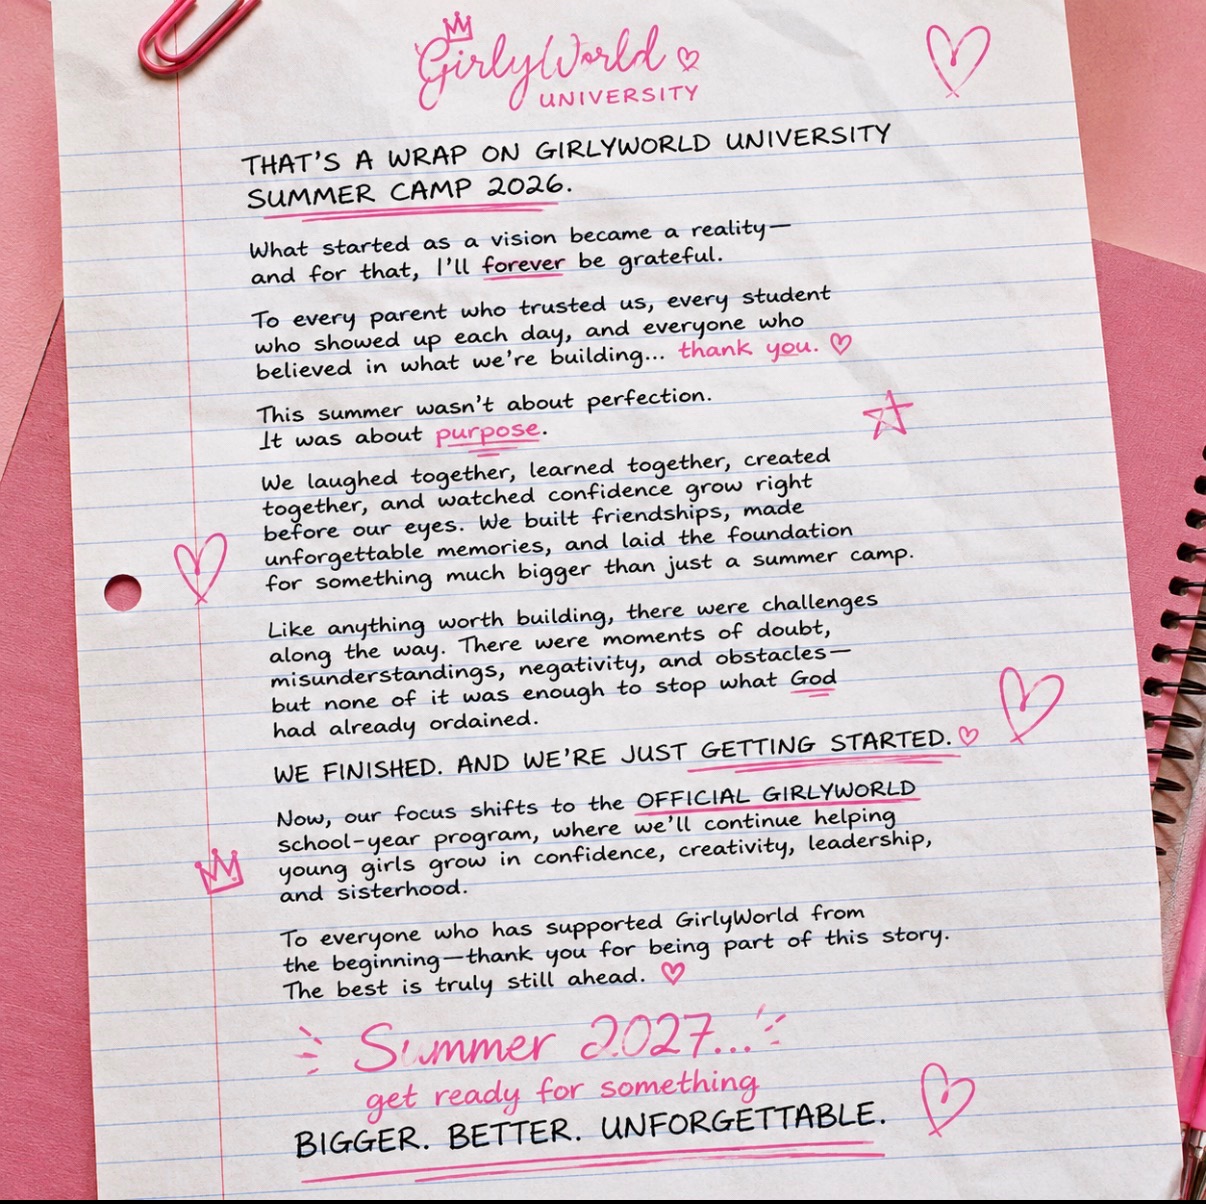 GirlyWorld
UNIVERSITY
THAT'S A WRAP ON GIRLYWORLD UNIVERSITY
SUMMER CAMP 2026.
What started as a vision became a reality—
and for that, I'll forever be grateful.
To every parent who trusted us, every student
who showed up each day, and everyone who
believed in what we're building... thank you.
This summer wasn't about perfection.
It was about purpose.
We laughed together, learned together, created
together, and watched confidence grow right
before our eyes. We built friendships, made
unforgettable memories, and laid the foundation
for something much bigger than just a summer camp.
Like anything worth building, there were challenges
along the way. There were moments of doubt,
misunderstandings, negativity, and obstacles—
but none of it was enough to stop what God
had already ordained.
WE FINISHED. AND WE'RE JUST GETTING STARTED.
Now, our focus shifts to the OFFICIAL GIRLYWORLD
school-year program, where we'll continue helping
young girls grow in confidence, creativity, leadership,
and sisterhood.
To everyone who has supported GirlyWorld from
the beginning—thank you for being part of this story.
The best is truly still ahead.
Summer 2027...
get ready for something
BIGGER. BETTER. UNFORGETTABLE.